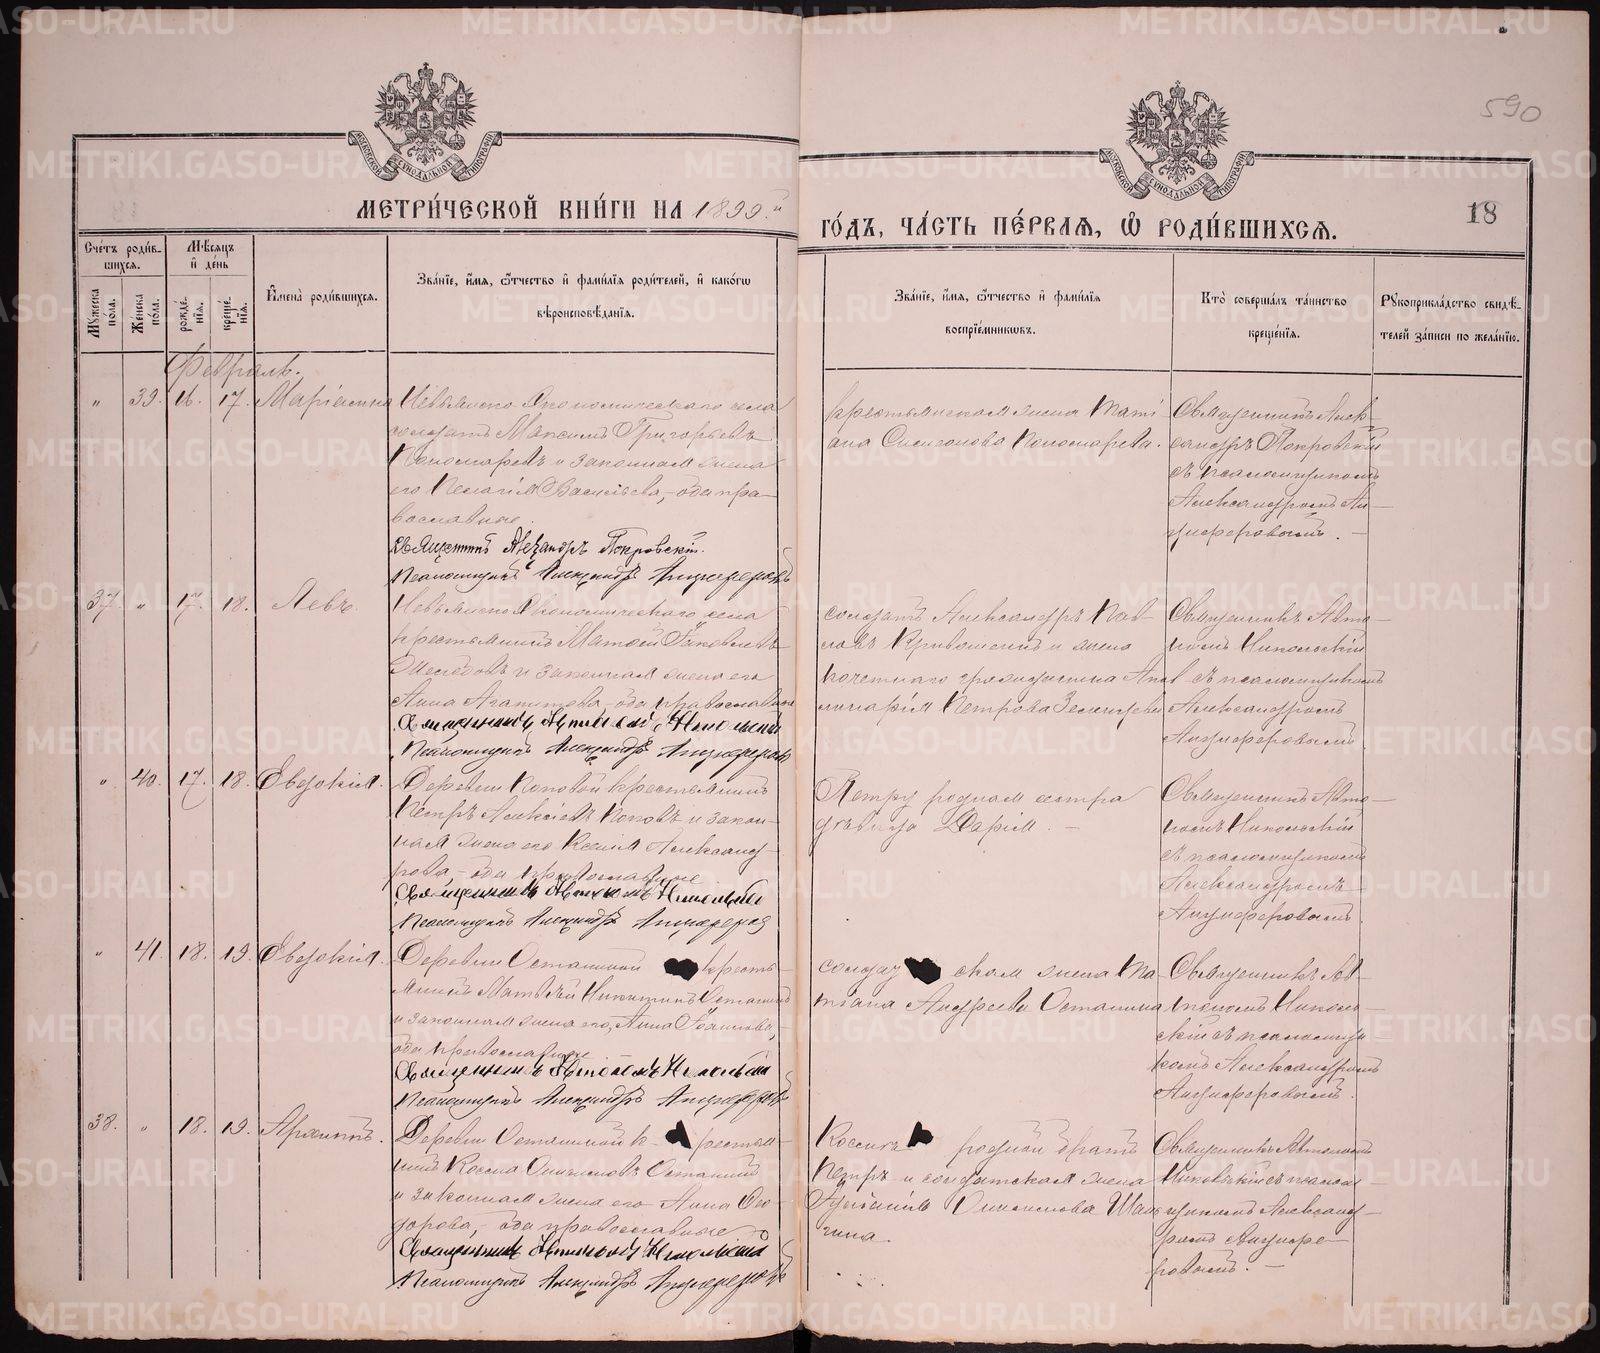 590
МЕТРИЧЕСКОЙ КНИГИ НА 1899й
ГОДЪ, ЧАСТЬ ПЕРВАЯ, Ѿ РОДИВШИХСЯ.
18
Счетъ родив-
шихся.
Мужеска пола.
Женска пола.
Мѣсяцъ и день
рожде-
нія.
креще-
нія.
Имена родившихся.
Званіе, имя, отчество и фамилія родителей, и какого
вѣроисповѣданія.
Званіе, имя, отчество и фамилія
воспріемниковъ.
Кто совершалъ таинство
крещенія.
Рукоприкладство свидѣ-
телей записи по желанію.
Февраль.
" 39. 16. 17.
села
солдатъ Максимъ Григорьевъ
Пономаревъ и законная жена
его Пелагія Васильева, оба пра-
вославные.
Священникъ Александръ Покровскій.
Псаломщикъ Александръ Анциферовъ
крестьянская жена Тати-
ана Пономарева.
Священникъ Алек-
сандръ Покровскій
съ псаломщикомъ
Александромъ Ан-
циферовымъ.
37. " 17. 18. Левъ.
села
крестьянинъ Матѳей Яковлевъ
и законная жена его
Анна Агапитова, оба православные
Священникъ Никольскій
Псаломщикъ Александръ Анциферовъ
солдатъ Александръ Пав-
ловъ Кривошеинъ и жена
почетнаго гражданина Апол-
линарія Петрова
Священникъ Авто-
номъ Никольскій
съ псаломщикомъ
Александромъ
Анциферовымъ.
" 40. 17. 18. Евдокія.
Деревни Поповой крестьянинъ
Петръ Алексіевъ Поповъ и закон-
ная жена его Ксенія Александ-
рова, оба православные
Священникъ Автономъ Никольскій
Псаломщикъ Александръ Анциферовъ
Петру родная сестра
дѣвица Дарія.
Священникъ Авто-
номъ Никольскій
съ псаломщикомъ
Александромъ
Анциферовымъ.
" 41. 18. 19. Евдокія.
Деревни Останиной кресть-
янинъ Матвѣй Никитинъ Останинъ
и законная жена его, Анна Іоаннова,
оба православные
Священникъ Автономъ Никольскій
Псаломщикъ Александръ Анциферовъ
солдатская жена Та-
тіана Андреева Останина
Священникъ Ав-
тономъ Николь-
скій съ псаломщи-
комъ Александромъ
Анциферовымъ.
38. " 18. 19. Архиппъ.
Деревни Останиной крестья-
нинъ Косма Останинъ
и законная жена его Анна Ѳео-
дорова, оба православные
Священникъ Автономъ Никольскій
Псаломщикъ Александръ Анциферовъ
родной братъ
Петръ и солдатская жена
Священникъ Автономъ
Никольскій съ псалом-
щикомъ Александ-
ромъ Анцифе-
ровымъ.
METRIKI.GASO-URAL.RU